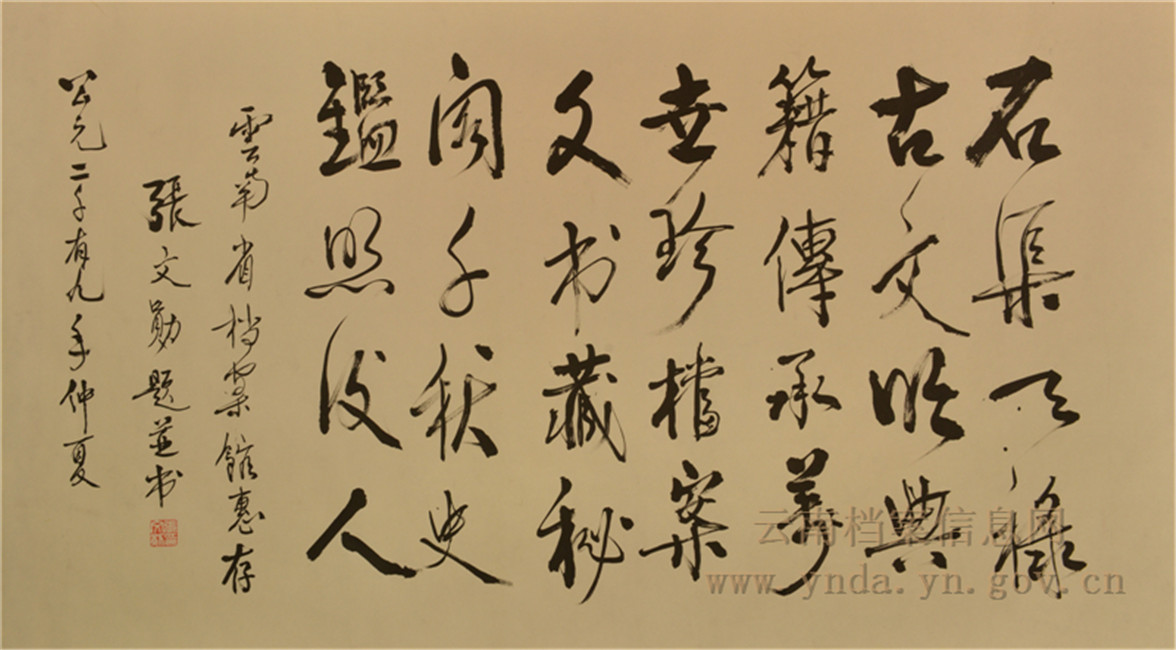 石渠天禄
古文典
籍傳承萬
世珍檔案
文书藏秘
阁千秋史
鑑照後人
雲南省档案館惠存
張文勛题並书
公元二千有九年仲夏
云南档案信息网
www.ynda.yn.gov.cn